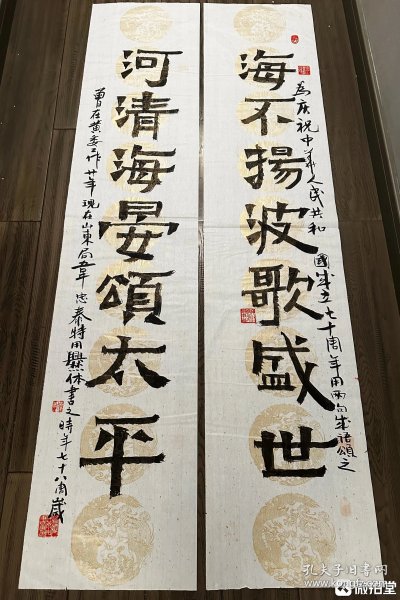 海不揚波歌盛世
為庆祝中华人民共和國成立七十周年用兩句成语頌之
河清海晏頌太平
曾在黄委工作廿年现在山東局
忠泰特用
体書之時年七十八周歲
孔夫子旧书网
微拍堂